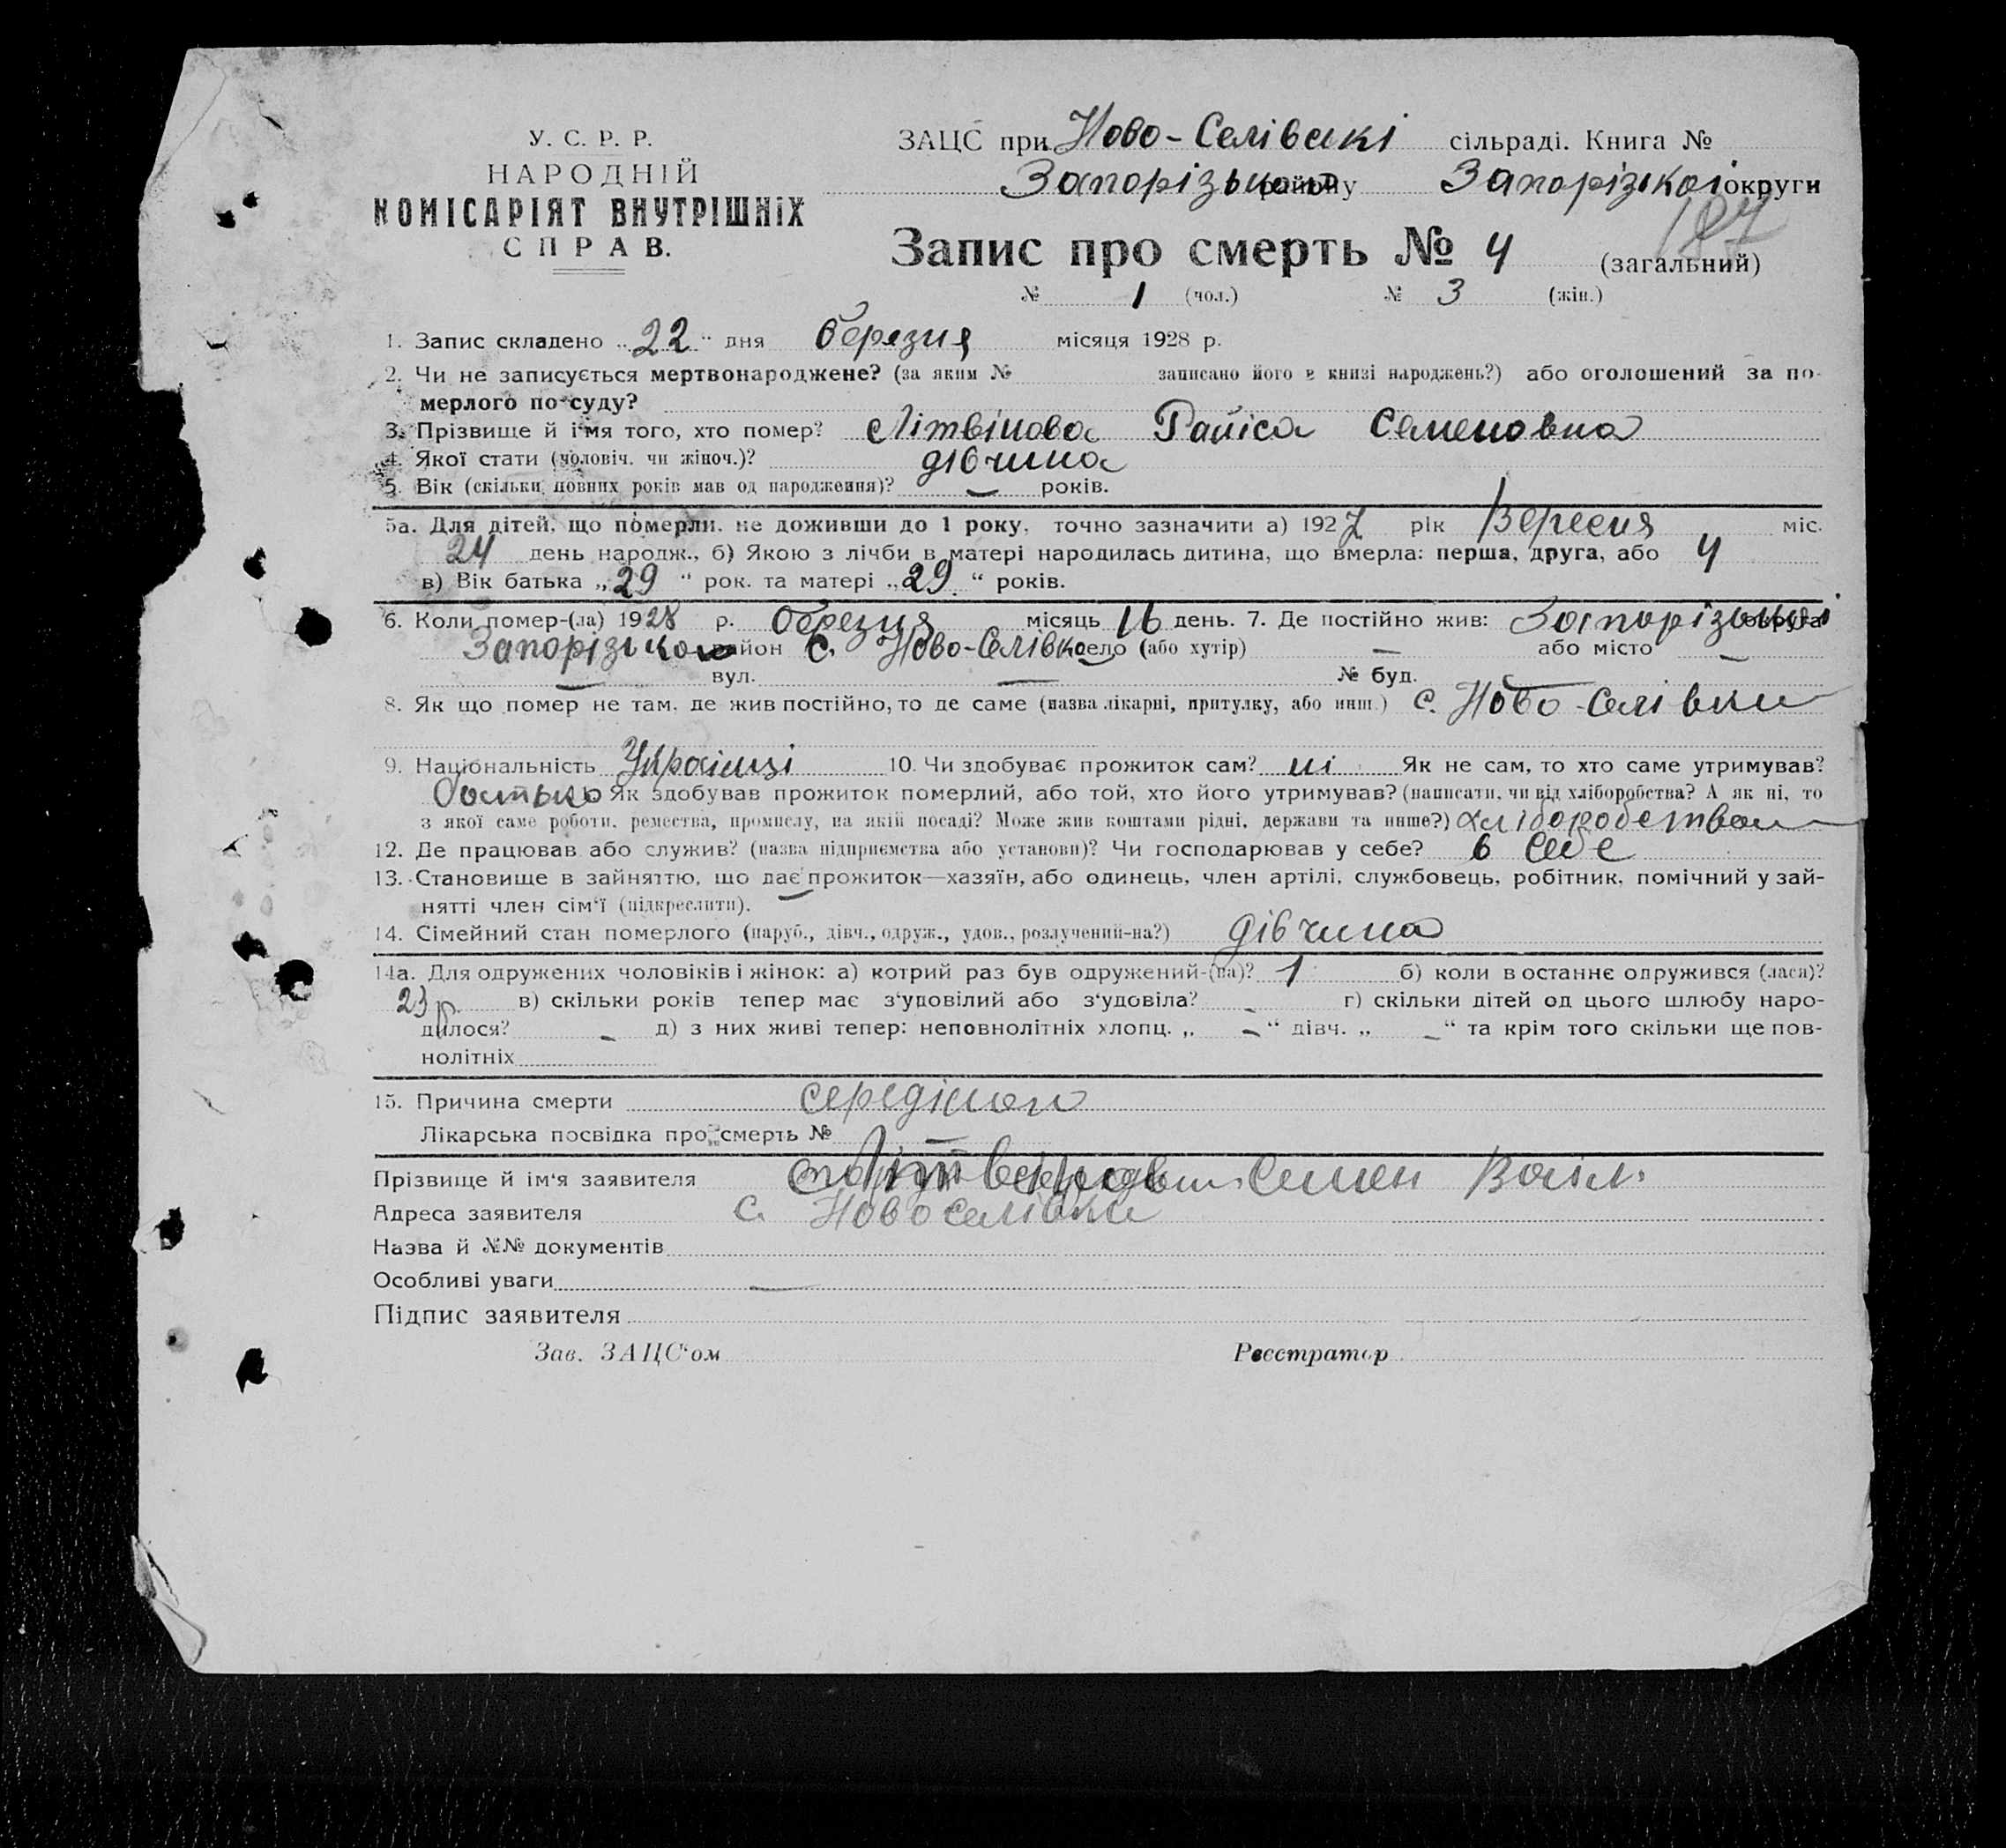 У. С. Р. Р.
НАРОДНІЙ
КОМІСАРІЯТ ВНУТРІШНІХ
СПРАВ.
ЗАЦС при Ново-Селівскі сільраді. Книга №
Запорізького району Запорізької округи
187
Запис про смерть № 4 (загальний)
№ 1 (чол.) № 3 (жін.)
1. Запис складено „22“ дня березня місяця 1928 р.
2. Чи не записується мертвонароджене? (за яким № записано його в книзі народжень?) або оголошений за по-
мерлого по суду?
3. Прізвище й ім'я того, хто помер? Літвінова Раїса Семеновна
4. Якої стати (чоловіч. чи жіноч.)? дівчина
5. Вік (скільки повних років мав од народження)? — років.
5а. Для дітей, що померли, не доживши до 1 року, точно зазначити а) 1927 рік Вересня міс.
24 день народж., б) Якою з лічби в матері народилась дитина, що вмерла: перша, друга, або 4
в) Вік батька „29“ рок. та матері „29“ років.
6. Коли помер-(ла) 1928 р. березня місяць 16 день. 7. Де постійно жив: Запорізької округа
Запорізького район С. Ново-Селівка село (або хутір) — або місто —
— вул. — № буд. —
8. Як що помер не там, де жив постійно, то де саме (назва лікарні, притулку, або инш.) с. Ново-Селівки
9. Національність Українці 10. Чи здобуває прожиток сам? ні Як не сам, то хто саме утримував?
батько Як здобував прожиток померлий, або той, хто його утримував? (написати, чи від хліборобства? А як ні, то
з якої саме роботи, ремества, промислу, на якій посаді? Може жив коштами рідні, держави та инше?) хліборобством
12. Де працював або служив? (назва підприємства або установи)? Чи господарював у себе? в себе
13. Становище в зайняттю, що дає прожиток—хазяїн, або одинець, член артілі, службовець, робітник, помічний у зай-
нятті член сім'ї (підкреслити).
14. Сімейний стан померлого (паруб., дівч., одруж., удов., розлучений-на?) дівчина
14а. Для одружених чоловіків і жінок: а) котрий раз був одружений-(на)? 1 б) коли в останнє одружився (лася)?
23 р. в) скільки років тепер має з'удовілий або з'удовіла? — г) скільки дітей од цього шлюбу наро-
дилося? — д) з них живі тепер: неповнолітніх хлопц. „—“ дівч. „—“ та крім того скільки ще пов-
нолітніх
15. Причина смерти
Лікарська посвідка про смерть № —
Прізвище й ім'я заявителя Семен Васіл.
Адреса заявителя с. Новоселівки
Назва й №№ документів
Особливі уваги —
Підпис заявителя
Зав. ЗАЦС'ом Реєстратор